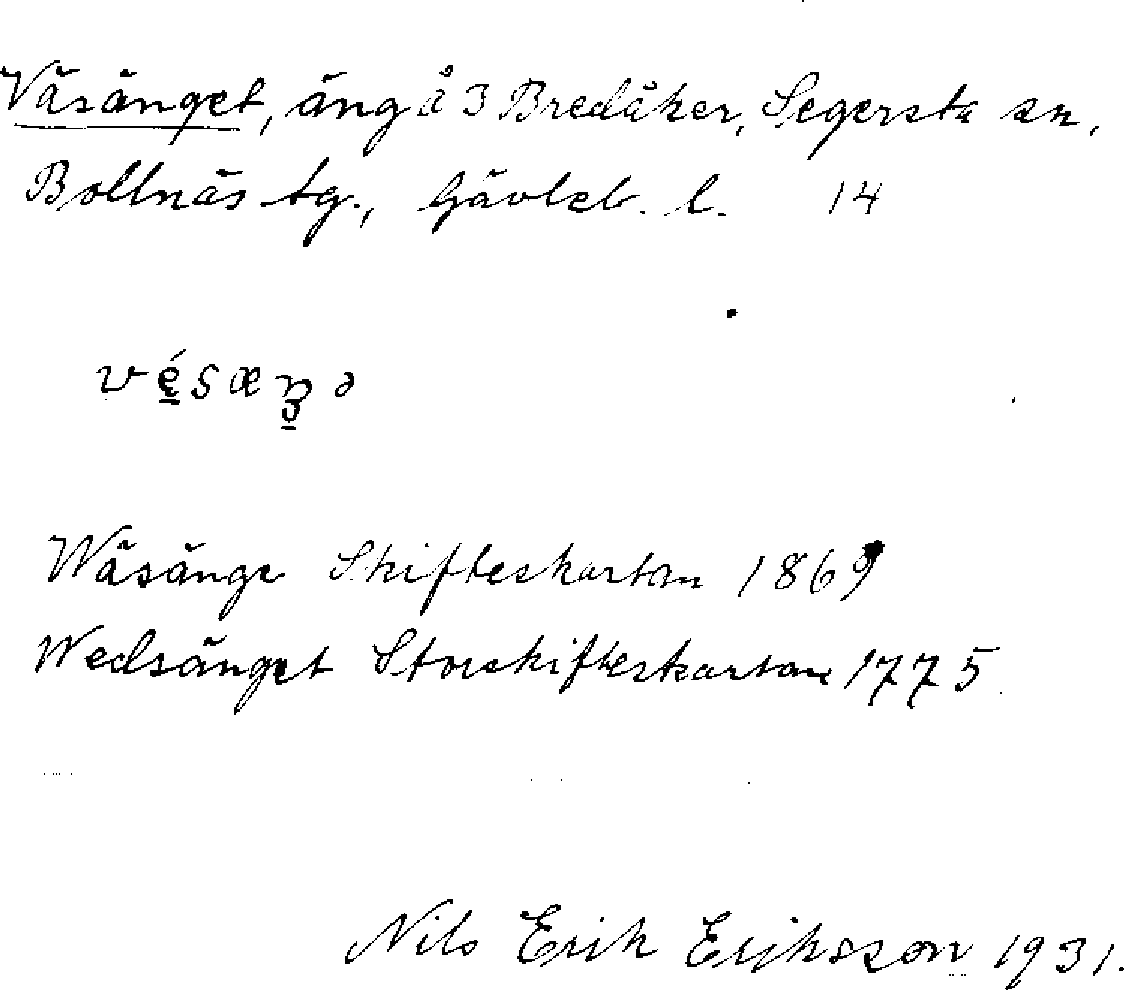 Väsänget, äng å 3 Bredåker, Segersta sn,
Bollnäs tg., Gävleb. l. 14
vésæŋə
Wäsänge Skifteskartan 1869
Wedsänget Storskifteskartan 1775
Nils Erik Eriksson 1931.